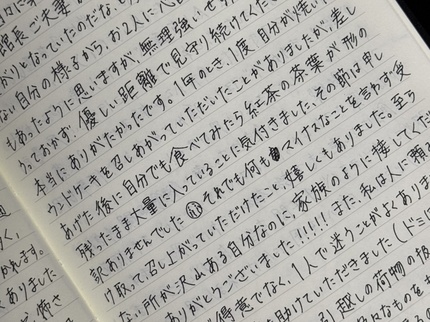 館長ご夫妻
がりとなっていたのだな、と
ない自分の様子から、お2人に心
もあったように思いますが、無理強いせず
っておかず、優しい距離で見守り続けてくだ
本当にありがたかったです。1年のとき、1度、自分が焼い
ウンドケーキを召しあがっていただいたことがありましたが、差し
あげた後に自分でも食べてみたら紅茶の茶葉が形の
残ったまま大量に入っていることに気付きました。その節は申し
訳ありませんでした それでも何もマイナスなことを言わず受
け取って召し上がっていただけたこと、嬉しくもありました。至ら
ない所が沢山ある自分なのに、家族のように接してくだ
ありがとうございました!!!!! また、私は人に頼る
得意でなく、1人で迷うことがよくありま
助けていただきました(ドミ
引越しの荷物の扱
なものを
く、
かれます。
ありました